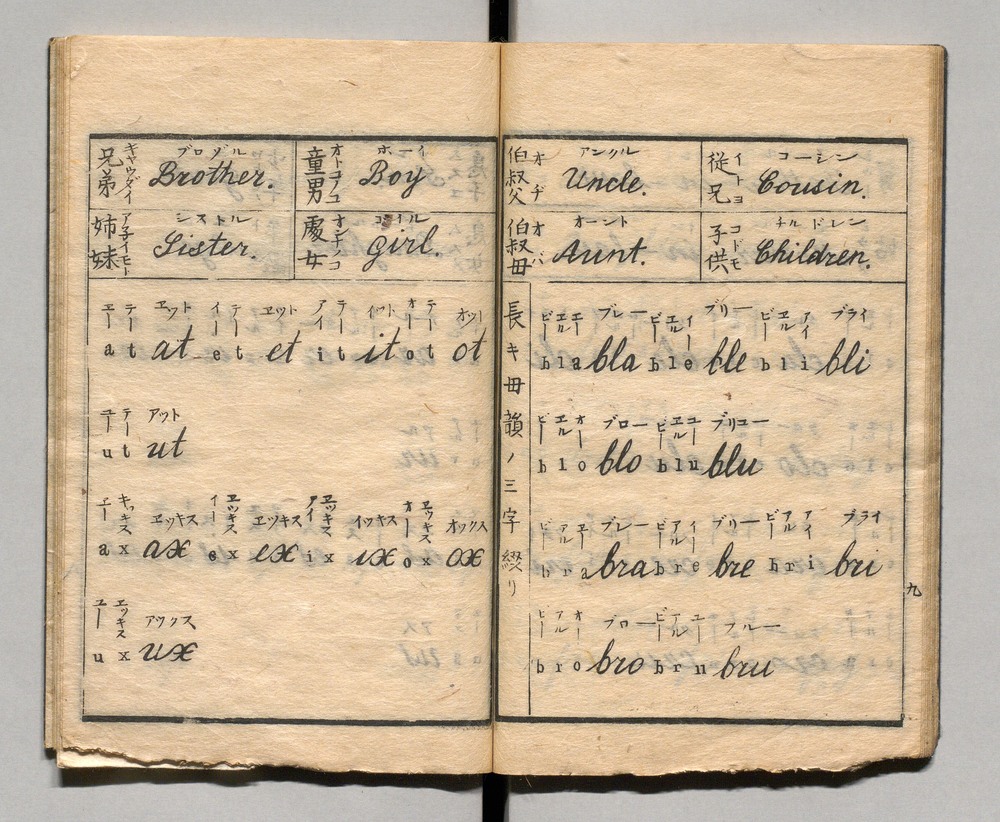 従兄 イトコ コーシン Cousin.
伯叔父 オヂ アンクル Uncle.
子供 コドモ チルドレン Children.
伯叔母 オバ オーント Aunt.
長キ母韻ノ三字綴リ
ビー エル エー ブレー ビー エル イー ブリー ビー エル アイ ブライ
b l a bla b l e ble b l i bli
ビー エル オー ブロー ビー エル ユー ブリユー
b l o blo b l u blu
ビー アル エー ブレー ビー アル イー ブリー ビー アル アイ ブライ
b r a bra b r e bre b r i bri
ビー アル オー ブロー ビー アル ユー ブルー
b r o bro b r u bru
九
童男 オトコノコ ボーイ Boy
兄弟 キヤウダイ ブロヅル Brother.
處女 オンナノコ Girl.
姉妹 アネイモト シストル Sister.
エー テー エット イー テー ヱット アイ テー イット オー テー オット
a t at e t et i t it o t ot
ユー テー アット
u t ut
エー エッキス エッキス イー エッキス ヱッキス アイ エッキス イッキス オー エッキス オックス
a x ax e x ex i x ix o x ox
ユー エッキス アックス
u x ux